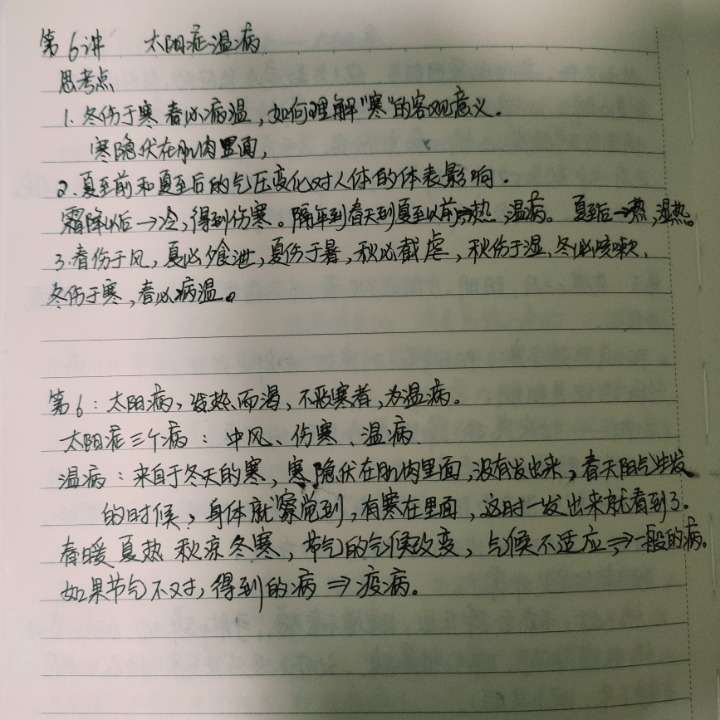 第6讲 太阳症温病
思考点
1. 冬伤于寒春必病温，如何理解"寒"的客观意义。
寒隐伏在肌肉里面，
2. 夏至前和夏至后的气压变化对人体的体表影响.
霜降以后→冷，得到伤寒。隔年到春天到夏至以前→热 温病。 夏至后→热，湿热。
3. 春伤于风，夏必飧泄，夏伤于暑，秋必截虐，秋伤于湿，冬必咳嗽，
冬伤于寒，春必病温。
第6：太阳病，发热而渴，不恶寒者，为温病。
太阳症三个病：中风、伤寒、温病
温病：来自于冬天的寒，寒隐伏在肌肉里面，没有发出来，春天阳气生发
的时候，身体就察觉到，有寒在里面，这时一发出来就看到了.
春暖夏热 秋凉冬寒，节气的气候改变，气候不适应⇒一般的病。
如果节气不对，得到的病⇒疫病。